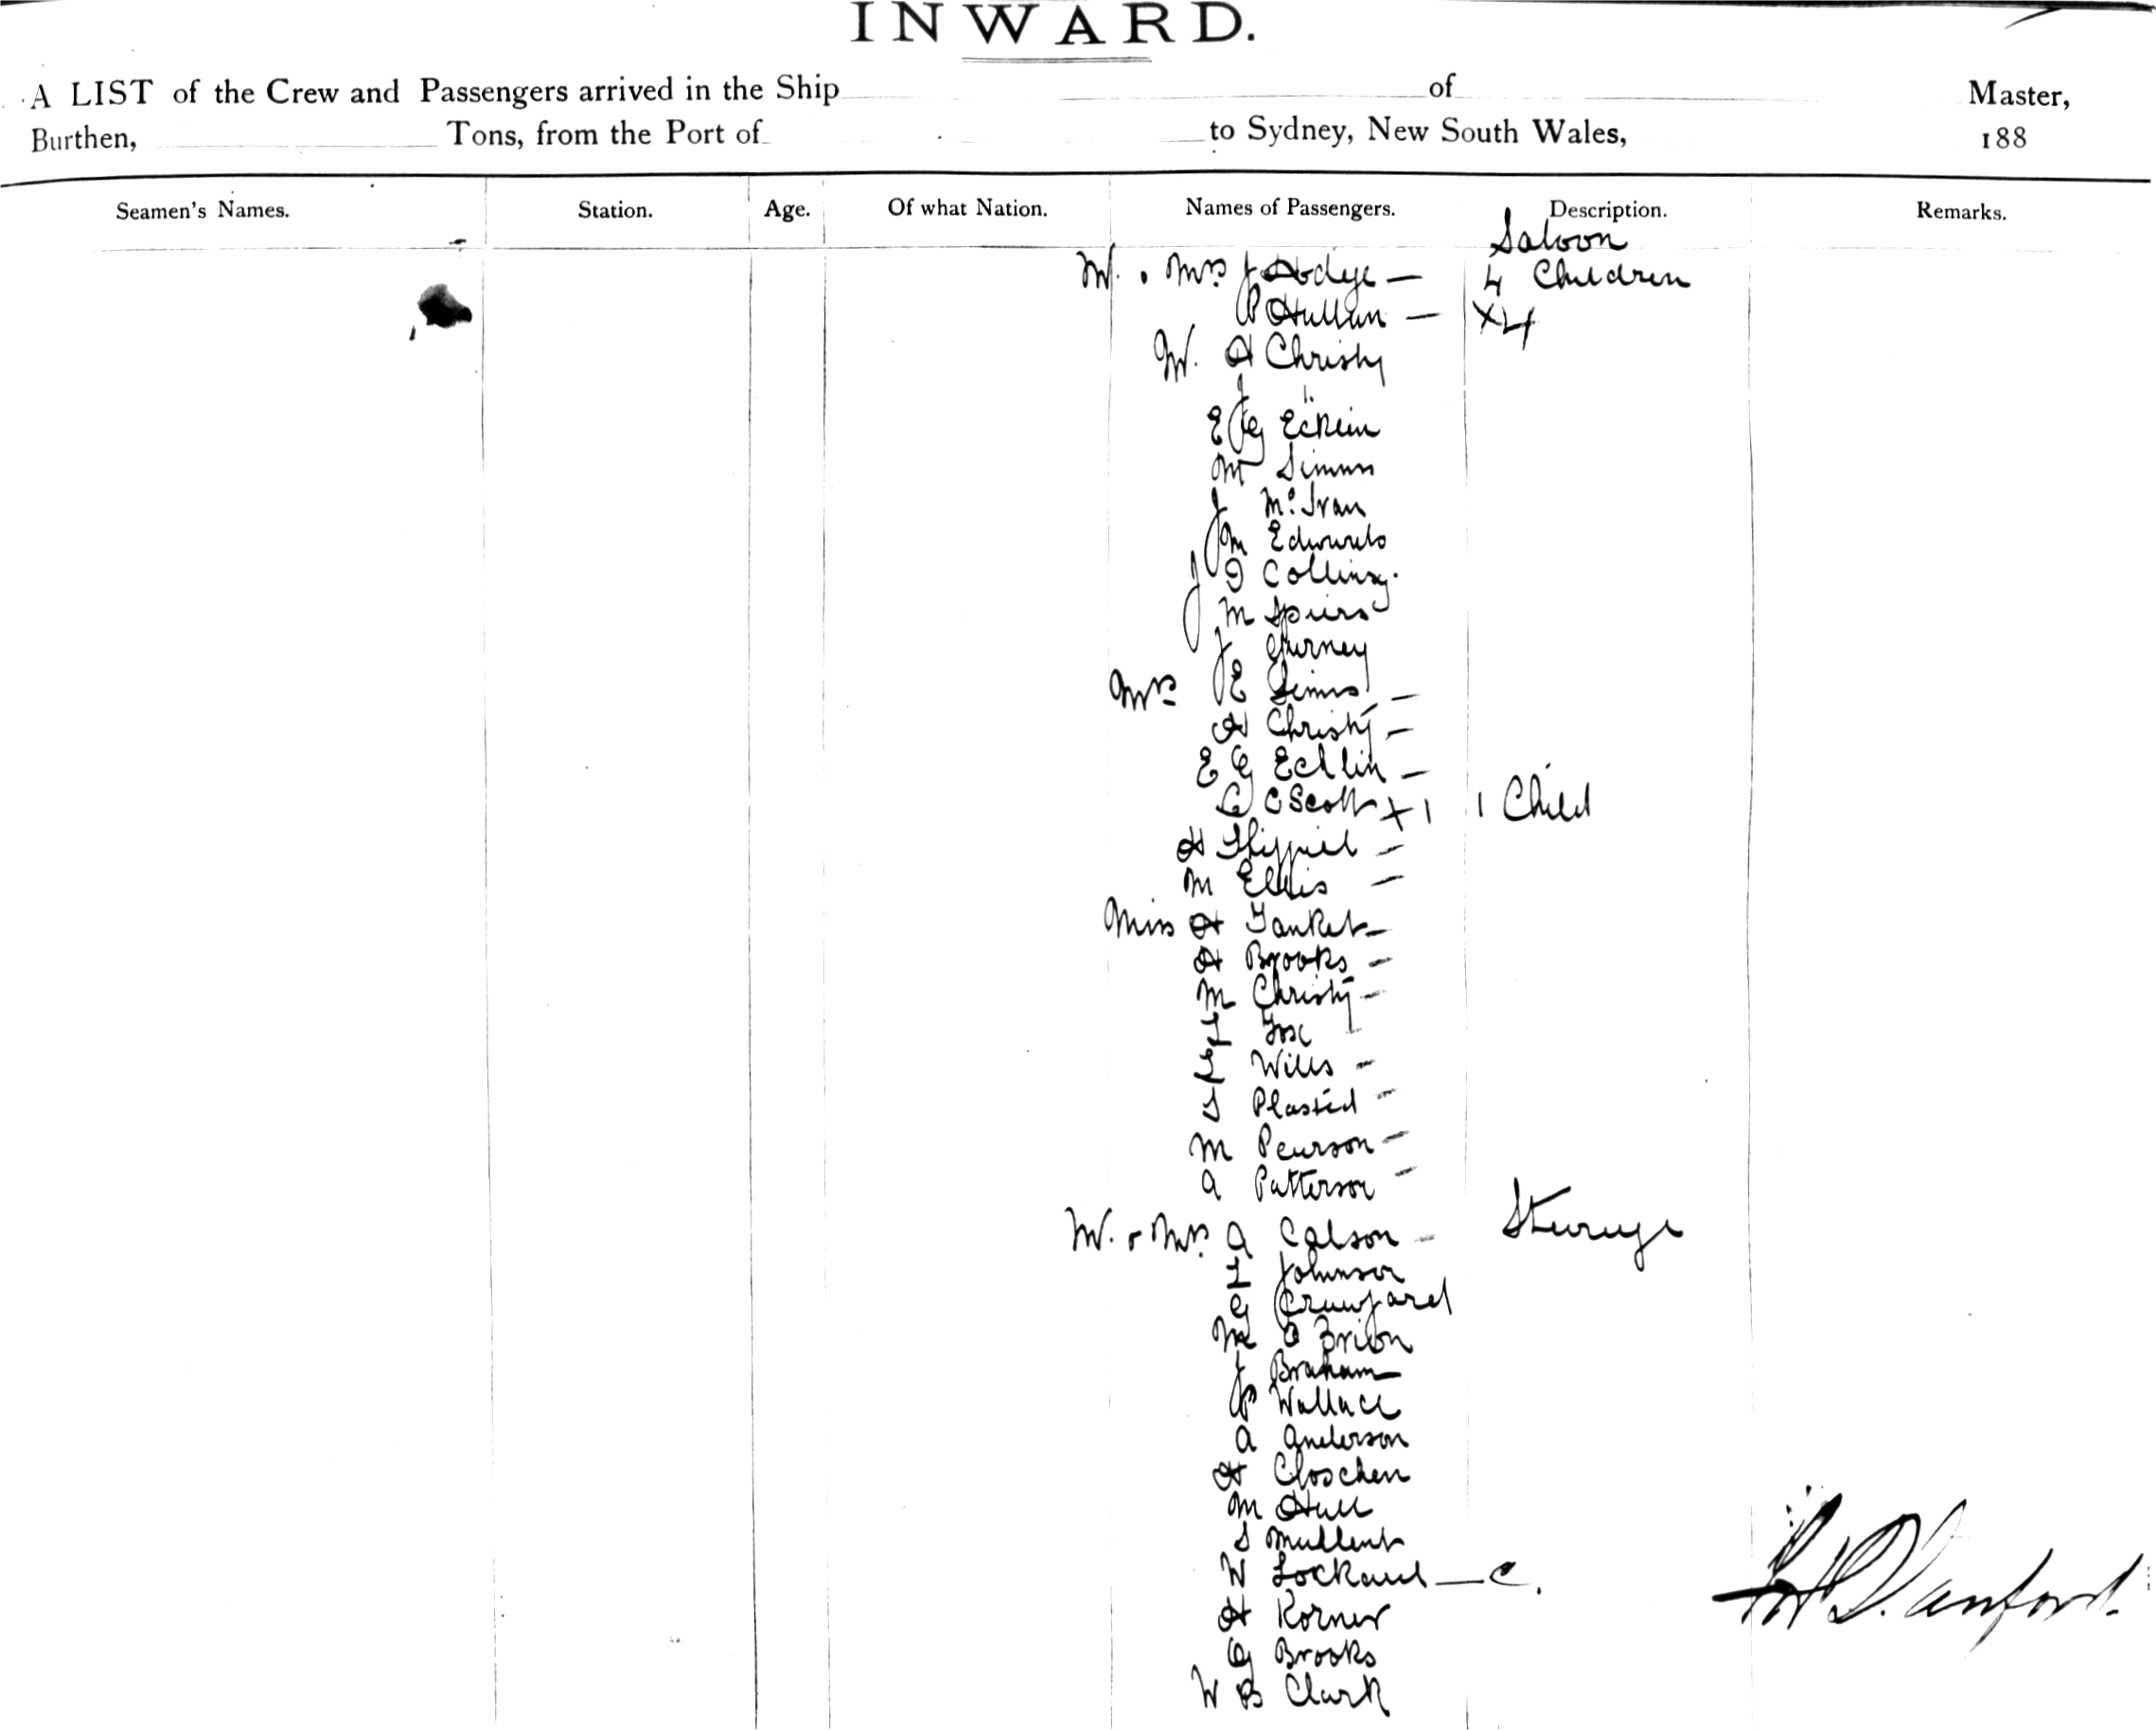 INWARD.
A LIST of the Crew and Passengers arrived in the Ship of Master,
Burthen, Tons, from the Port of to Sydney, New South Wales, 188
Seamen's Names. Station. Age. Of what Nation. Names of Passengers. Description. Remarks.
Saloon
Mr. & Mrs J Hodge — 4 Children
P Hullan — x4
Mr. H Christy
J "
E G
M Simms
J
J M Edwards
J D Collins.
J M Spiers
J Gurney
Mrs E Sims —
H Christy —
E G Ecklin —
C Scott x1 1 Child
H —
M Ellis —
Miss H —
H Brooks —
M Christy —
L Fox —
E Wills —
S Plasted —
M Pearson —
A Patterson —
Mr. & Mrs. A Calson — Steerage
L Johnson
G Crawford
M O Brien
J Braham
P Wallace
A Anderson
H Closchen
M Hull
S Mullent
W Lockard — C.
H Korner
G Brooks
W B Clark